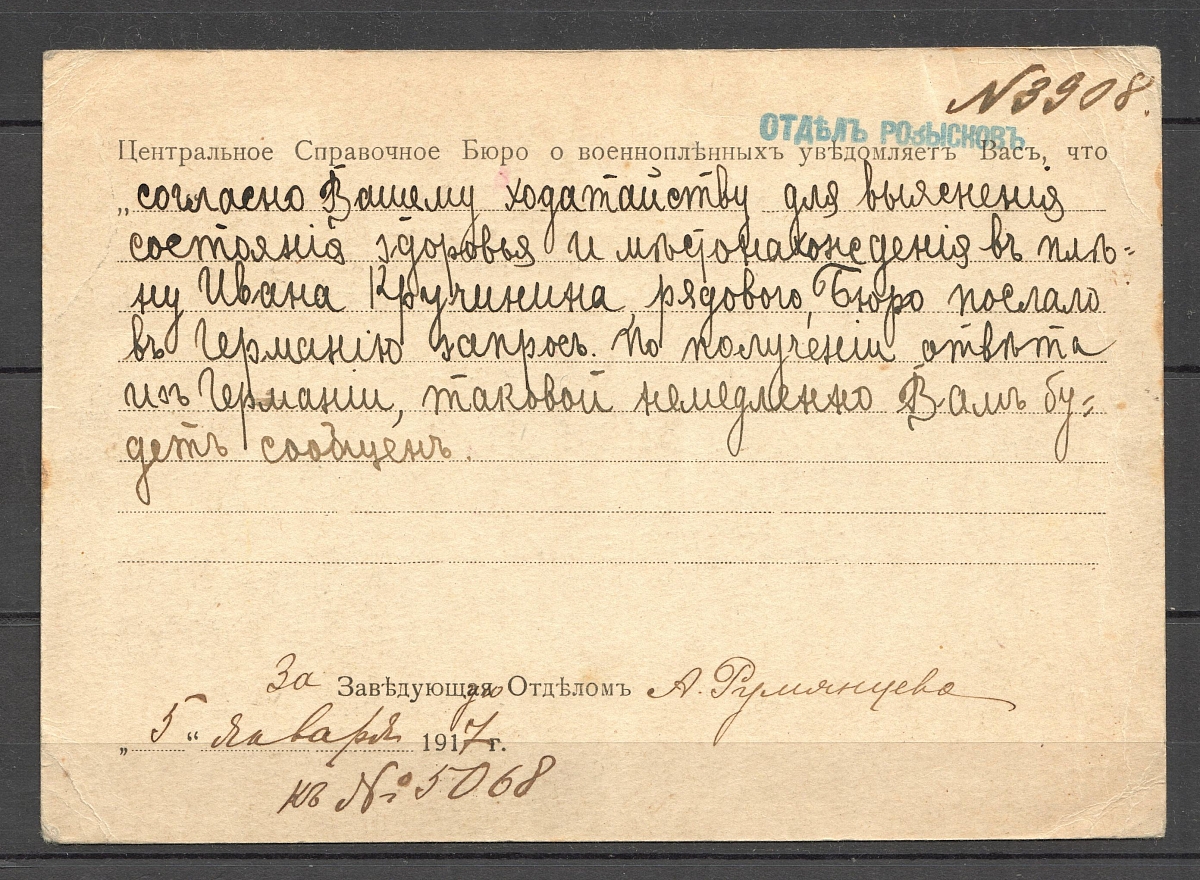 N3908.
ОТДѢЛЪ РОЗЫСКОВЪ
Центральное Справочное Бюро о военноплѣнныхъ увѣдомляетъ Васъ, что
„согласно Вашему ходатайству для выясненія
состоянія здоровья и мѣстонахожденія въ плѣ-
ну Ивана Кручинина, рядового, Бюро послало
въ Германію запросъ. По полученіи отвѣта
изъ Германіи, таковой немедленно Вамъ бу-
детъ сообщенъ.
За Завѣдующая Отдѣломъ А. Румянцева
ую
„5“ января 1917 г.
къ № 5068